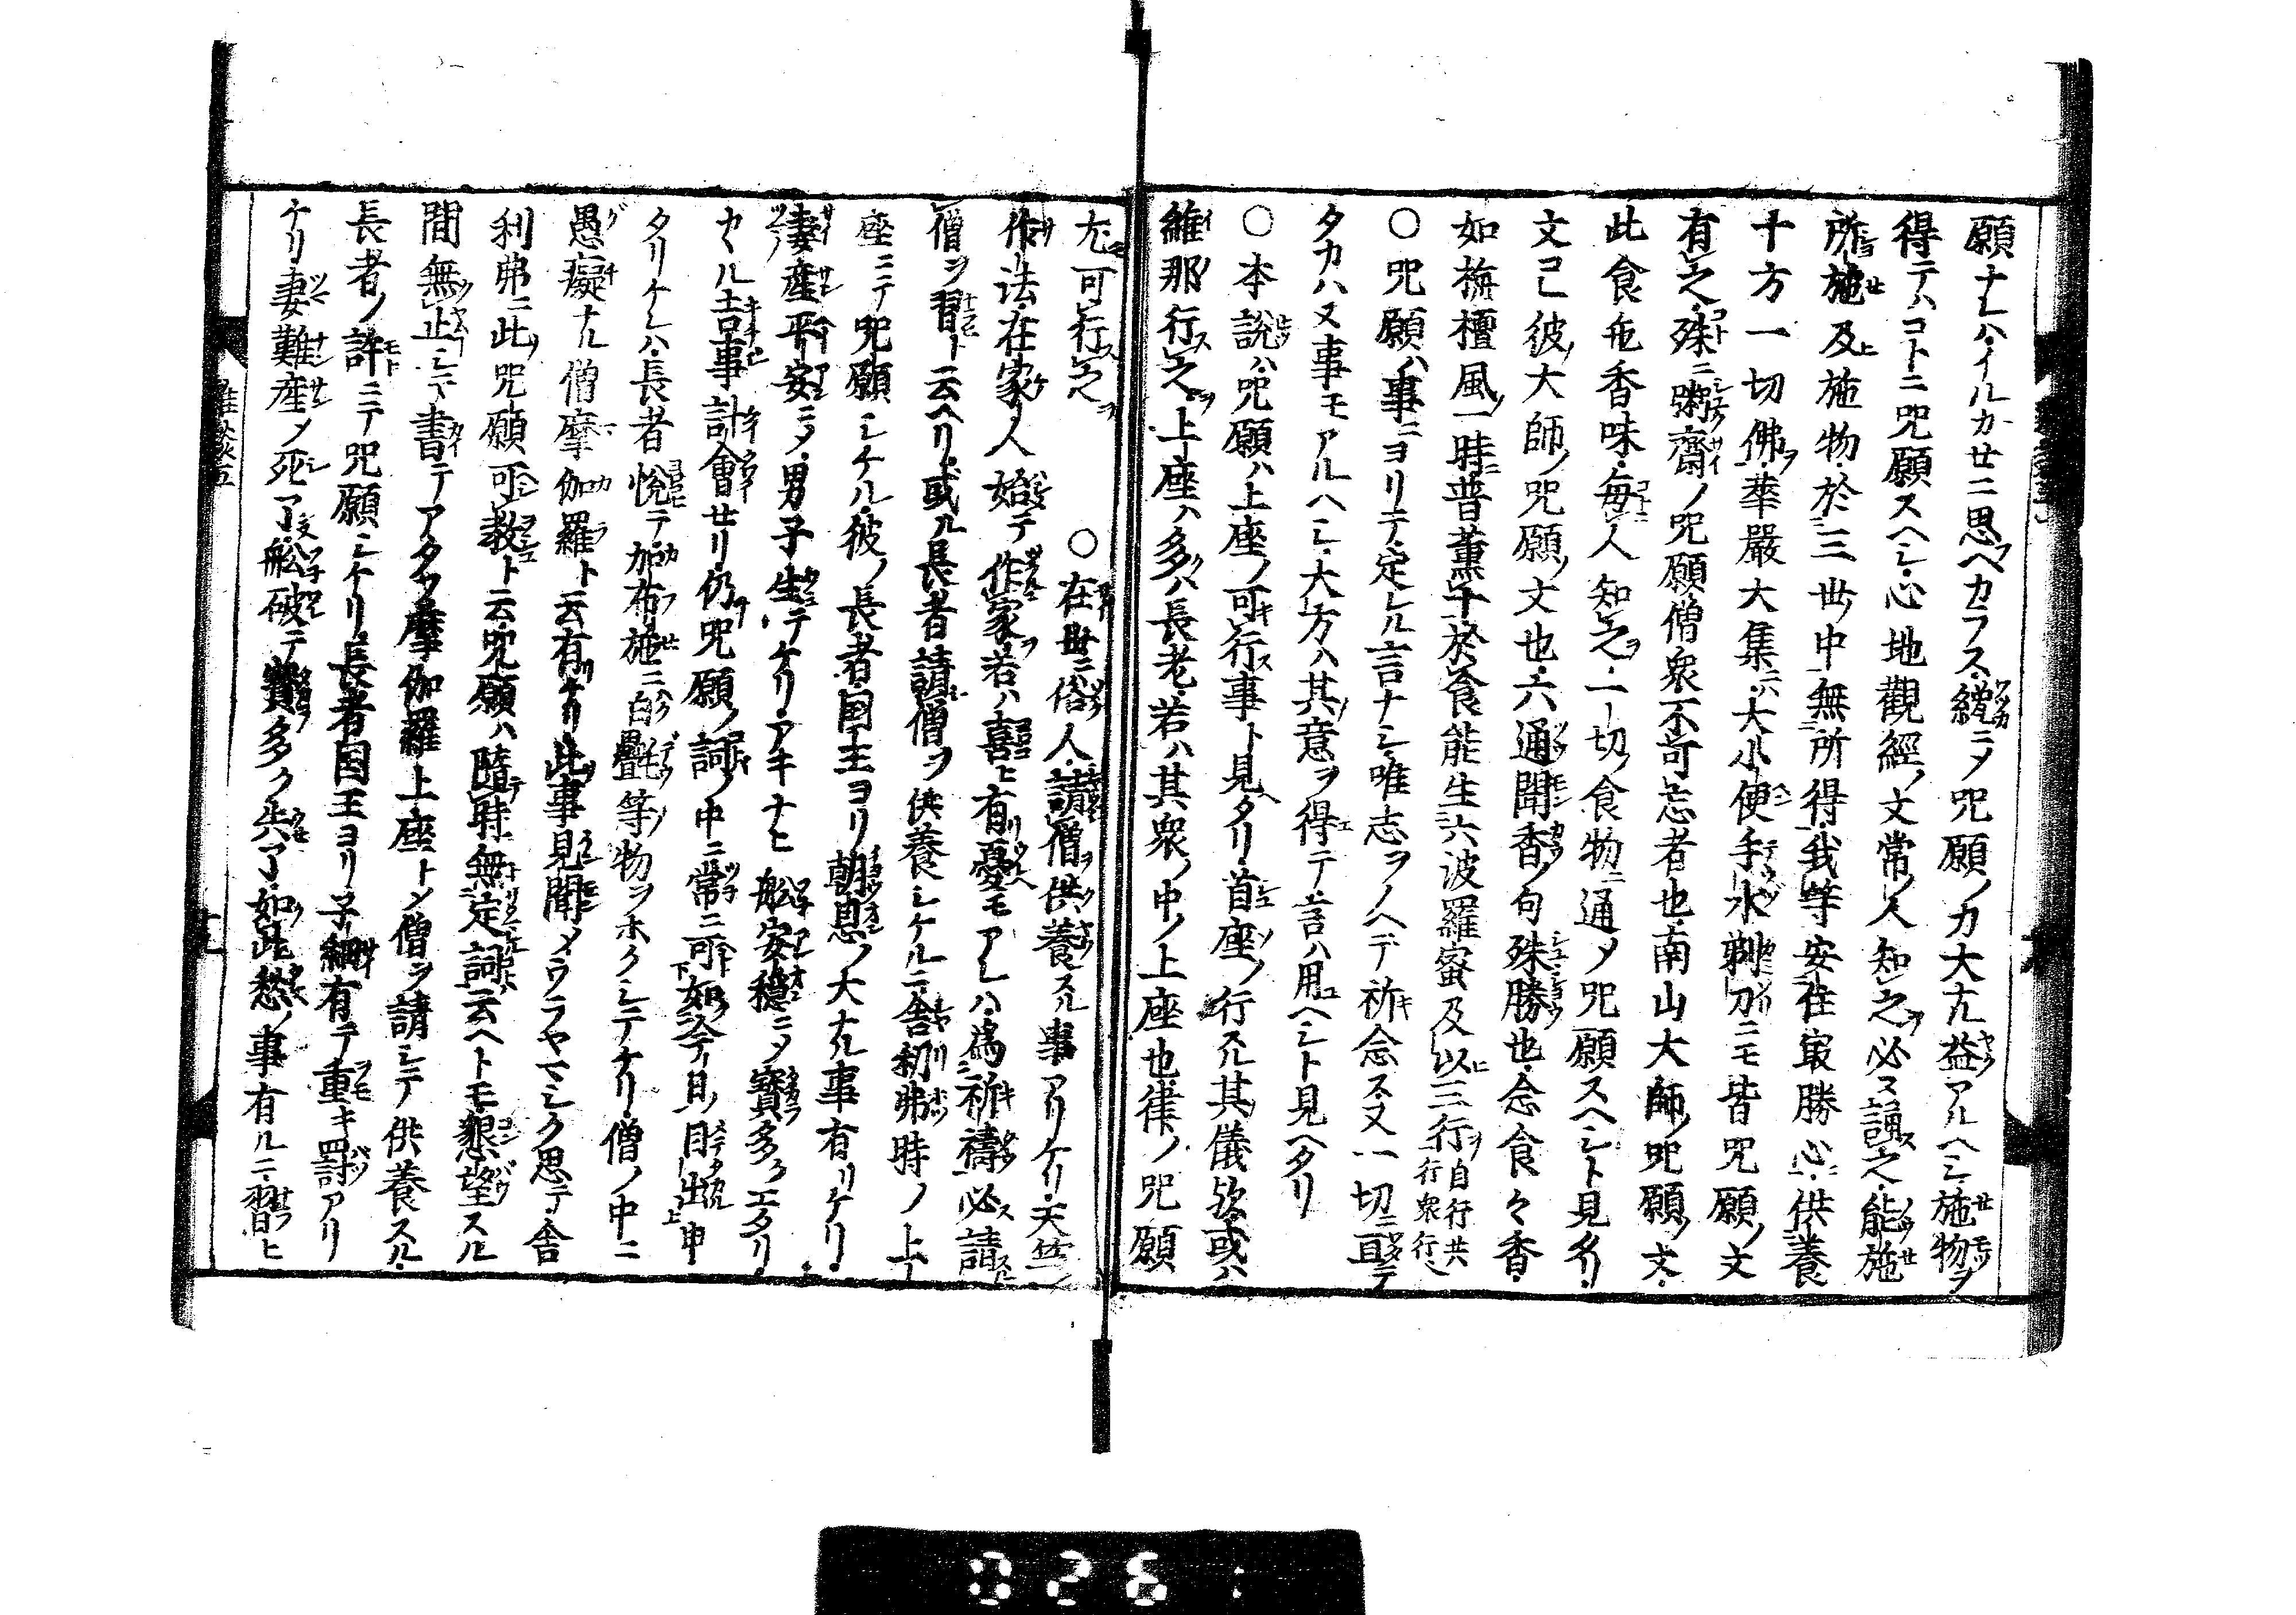 願ナレハ・イルカセニ思ヘカラス・纔ニメ咒願ノ力大ナル益アルヘシ・施物ヲ
得テハコトニ咒願スヘシ・心地觀經ノ文常ノ人知之必ス誦之・能施
所施及施物・於三世中無所得・我等安住最勝心・供養
十方一切佛・華嚴大集ニハ・大小便手水剃刀ニモ皆咒願ノ文
有之・殊ニ粥齋ノ咒願僧衆不可忘者也・南山大師ノ咒願ノ文・
此食色香味・毎人知之・一切ノ食物ニ通メ咒願スヘシト見タリ・
文己彼大師ノ咒願ノ文也・六通聞香ノ句殊勝也・念食々香・
如栴檀風・一時普薫・於食能生六波羅蜜及以三行自行共行衆行ヘ
〇咒願ハ事ニヨリテ・定レル言ナシ・唯志ヲノヘテ祈念ス・又一切ニ亘テ
タカハヌ事モアルヘシ・大方ハ其意ヲ得テ・言ハ用ヘシト見ヘタリ
〇本説ハ咒願ハ上座ノ可行事ト見タリ・首座ノ行スル其儀歟・或ハ
維那行之・上座ハ・多ハ長老・若ハ其衆ノ中ノ上座也律ノ咒願
尤可行之 〇在世ニ俗人・請僧供養スル事アリケリ・天竺ノ
作法・在家人始テ作家・若ハ喜ヒ有憂モアレハ・為祈禱必請
僧ヲ習ト云ヘリ・或ル長者請僧ヲ供養シケルニ・舎利弗時ノ上
座ニテ咒願シケル・彼ノ長者・国王ヨリ朝恩ノ大ナル事有リケリ・
妻産平安ニメ・男子生テケリ・アキナヒ舩安穏ニメ寳多クエタリ・
カヽル吉事計會セリ・仍咒願ノ詞ノ中ニ常ニ可如今日ノ目出申
タリケレハ・長者悦テ・加布施ニ白㲲等ノ物ヲホクシテケリ・僧ノ中ニ
愚癡ナル僧摩伽羅ト云有ケリ・此事見聞メウラヤマシク思テ・舎
利弗ニ此咒願可教ト云・咒願ハ随時無定詞云ヘトモ・懇望スル
間無止シテ書テアタフ・摩伽羅上座トシ僧ヲ請シテ供養スル・
長者ノ許ニテ咒願シケリ・長者国王ヨリ子細有テ重キ罸アリ
ケリ妻難産メ死了・舩破テ寳多ク失了・如此愁ノ事有ルニ・習ヒ
雑談五